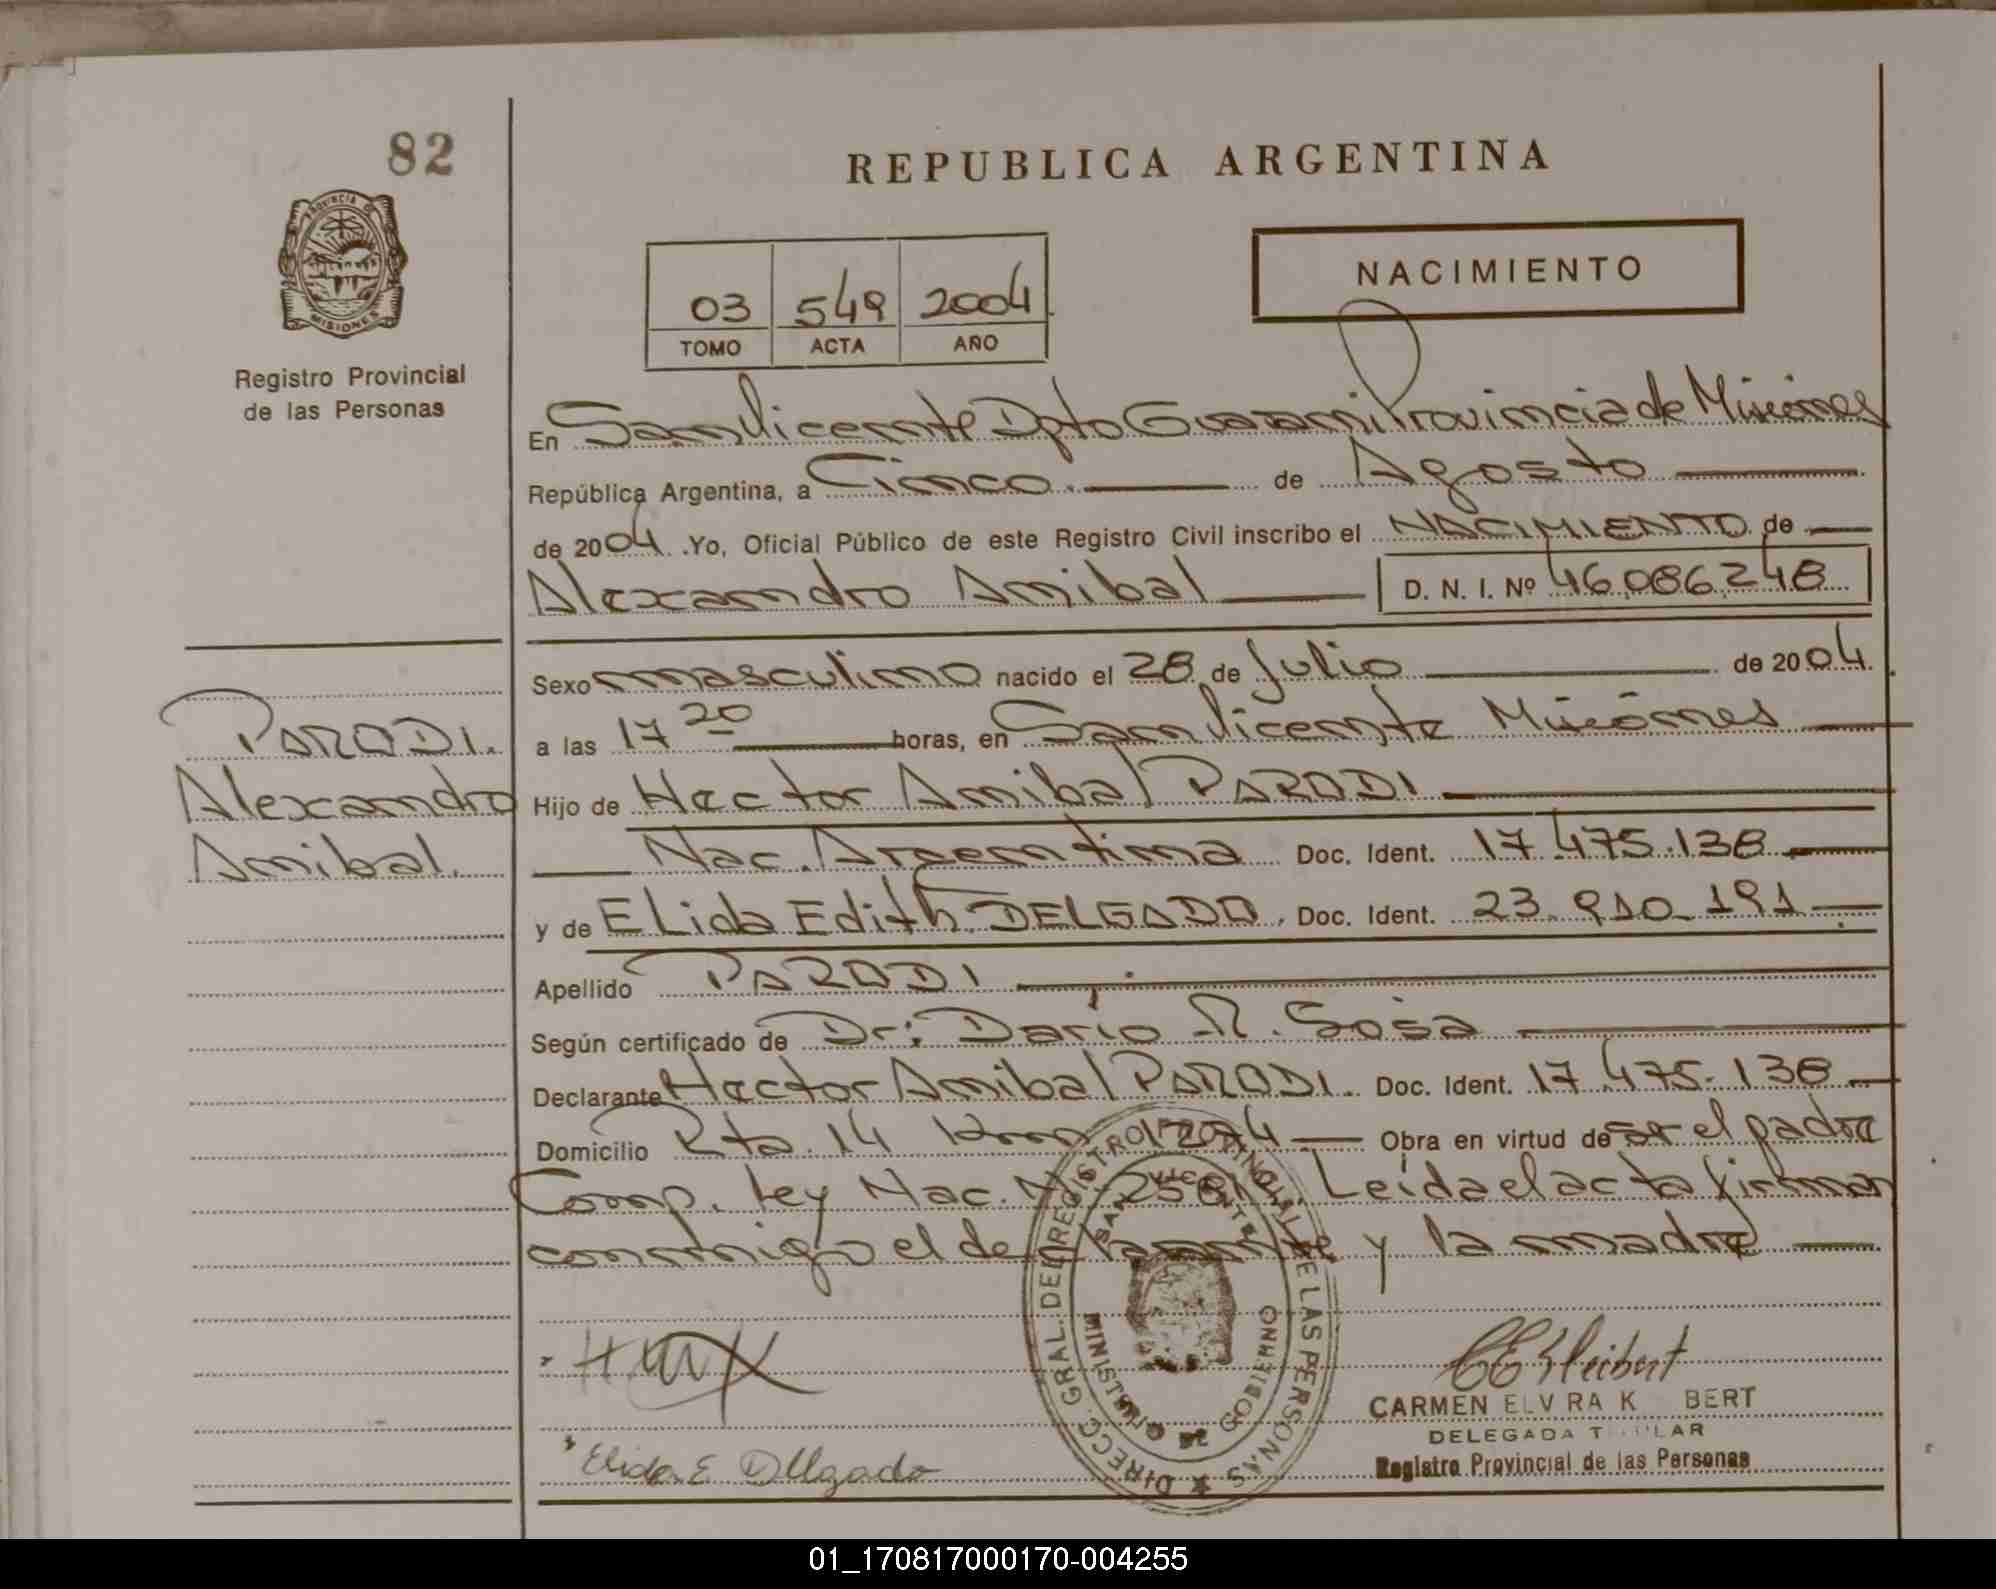 82
REPUBLICA ARGENTINA
PROVINCIA DE
MISIONES
Registro Provincial
de las Personas
NACIMIENTO
03 549 2004
TOMO ACTA AÑO
En San Vicente Dpto Guaraní Provincia de Misiones
República Argentina, a Cinco de Agosto
de 2004 .Yo, Oficial Público de este Registro Civil inscribo el NACIMIENTO de
Alexandro Anibal D. N. I. Nº 46.086.248
Sexo masculino nacido el 28 de Julio de 2004.
a las 17 20 horas, en San Vicente Misiones
PARODI.
Alexandro
Anibal.
Hijo de Hector Anibal PARODI
Nac. Argentina Doc. Ident. 17.475.138
y de ELida Edith DELGADO. Doc. Ident. 23.910.191
Apellido PARODI
Según certificado de Dr: Dario R. Sosa
Declarante Hector Anibal PARODI. Doc. Ident. 17.475.138
Domicilio Rta. 14 Km Obra en virtud de ser el padre
Comp. Ley Nac. Leida el acta firman
conmigo el declarante y la madre
DIRECC. GRAL. DEL REGISTRO PROVINCIAL DE LAS PERSONAS
SAN VICENTE
MINISTERIO DE GOBIERNO
Elida E Delgado
CARMEN ELV RA K BERT
DELEGADA T LAR
Registro Provincial de las Personas
01_170817000170-004255